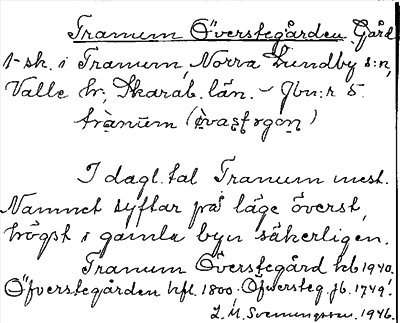 Tranum Överstegården Gård
1-sk. i Tranum, Norra Lundby s:n,
Valle hr, Skarab. län. - Jbn:r 5.
tranum (övastrgon)
I dagl. tal Tranum mest.
Namnet syftar på läge överst,
högst i gamla byn säkerligen.
Tranum Överstegård kb 1940.
Öfverstegården hfl. 1800. Öfwersteg. jb. 1749.
L. M. Svenungsson. 1946.